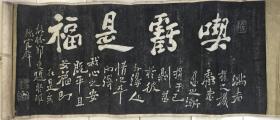 喫虧是福
滿者
損之機
虧者
盈之漸
損于己
則益
於彼
外得人
情之平
内得
我心之安
既平且
安福即
在是矣